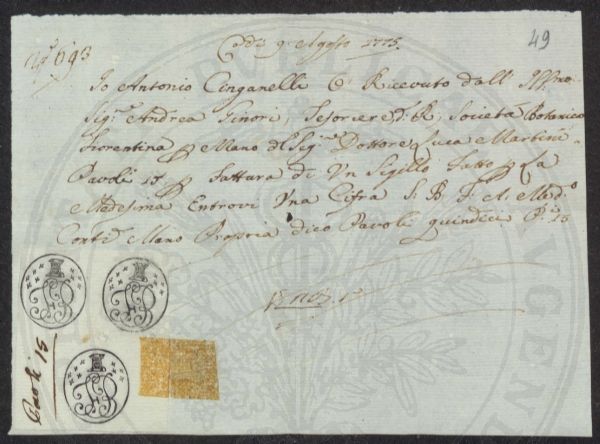 49
Nº 693
Adì 9 Agosto 1775.
Io Antonio Cinganelli ò Ricevuto dall Illmo
Sigr Andrea Ginori, Tesoriere, d. R. Società Botanica
Fiorentina p Mano dl Sigre Dottore Luca Martini
Pavoli 15 p fattura di Un Sigillo fatto p La
Medesima Entrovi Una Cifra S. B. F. A. Medo
Conti Mano Propria dico Pavoli quindici Pi 15
Pavoli 15